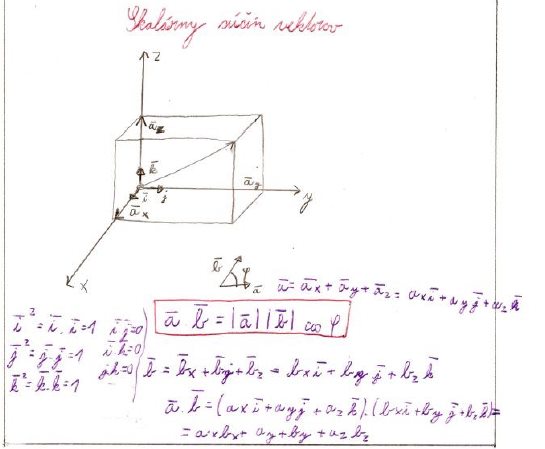 Skalárny súčin vektorov
z
a̅z
k̅
i̅ j̅
a̅y
a̅x
y
x
b̅ φ a̅
a̅ = a̅x + a̅y + a̅z = axi̅ + ay j̅ + az k̅
a̅ b̅ = |a̅| |b̅| cos φ
i̅² = i̅ . i̅ = 1 i̅ j̅=0
j̅² = j̅ . j̅ = 1 i̅.k=0
k̅² = k̅ . k̅ = 1 jk=0
b̅ = b̅x + b̅y + b̅z = bxi̅ + by j̅ + bz k̅
a̅ . b̅ = (axi̅ + ayj̅ + az k̅) . (bxi̅ + by j̅ + bz k̅) =
= axbx + ay + by + az bz